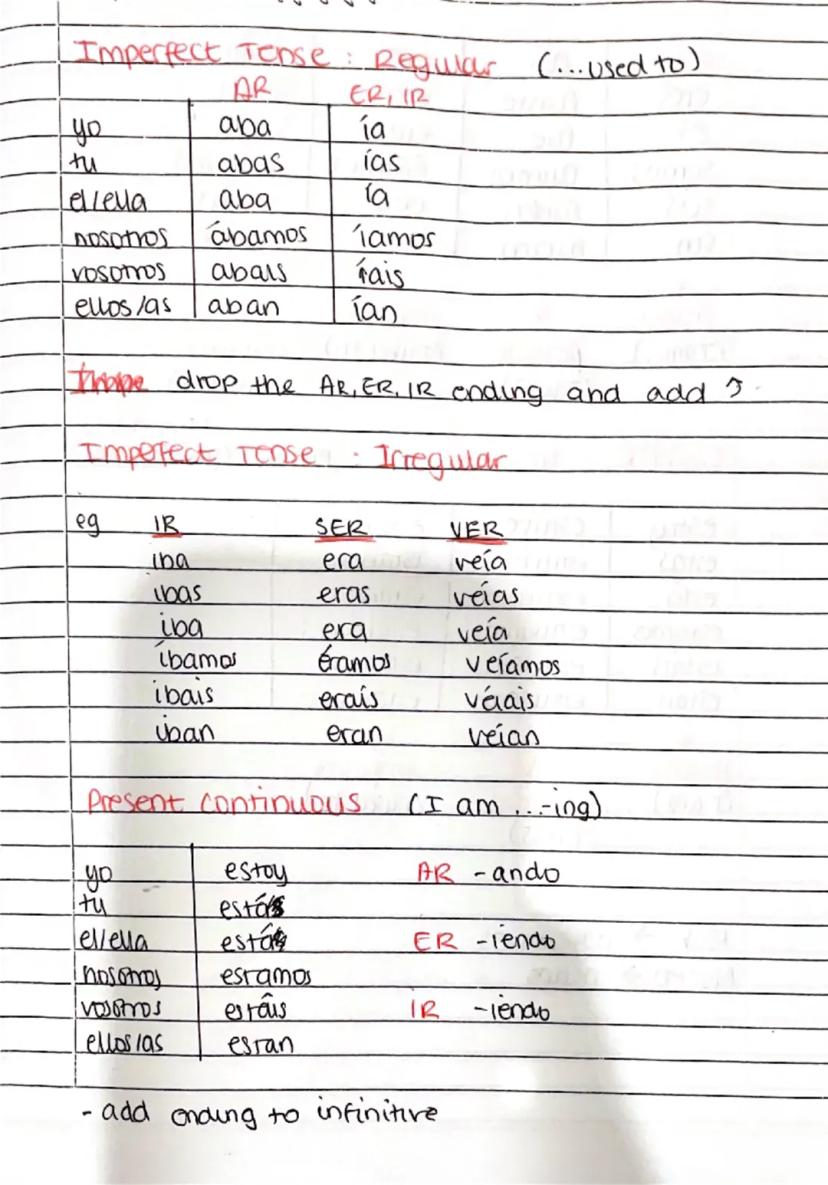 Imperfect Tense : Regular (...used to)
AR ER, IR
yo aba ía
tu abas ías
el/ella aba ía
nosotros ábamos íamos
vosotros abais íais
ellos/as aban ían
drop the AR, ER, IR ending and add ↑
Imperfect Tense : Irregular
eg IR SER VER
iba era veía
ibas eras veías
iba era veía
íbamos éramos veíamos
ibais erais veíais
iban eran veían
Present continuous (I am ...-ing)
yo estoy AR -ando
tu estás
el/ella está ER -iendo
nosotros estamos
vosotros estáis IR -iendo
ellos/as estan
- add ending to infinitive